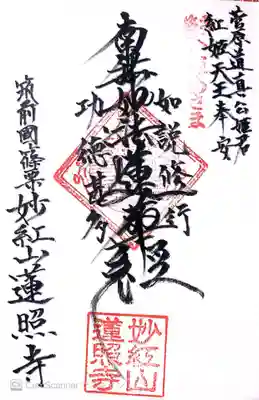 菅原道真公姫君
紅姫天王奉安
如説修行
南無妙法蓮華経
功徳甚多
筑前國篠栗妙紅山蓮照寺
妙紅山
蓮照寺
CamScanner